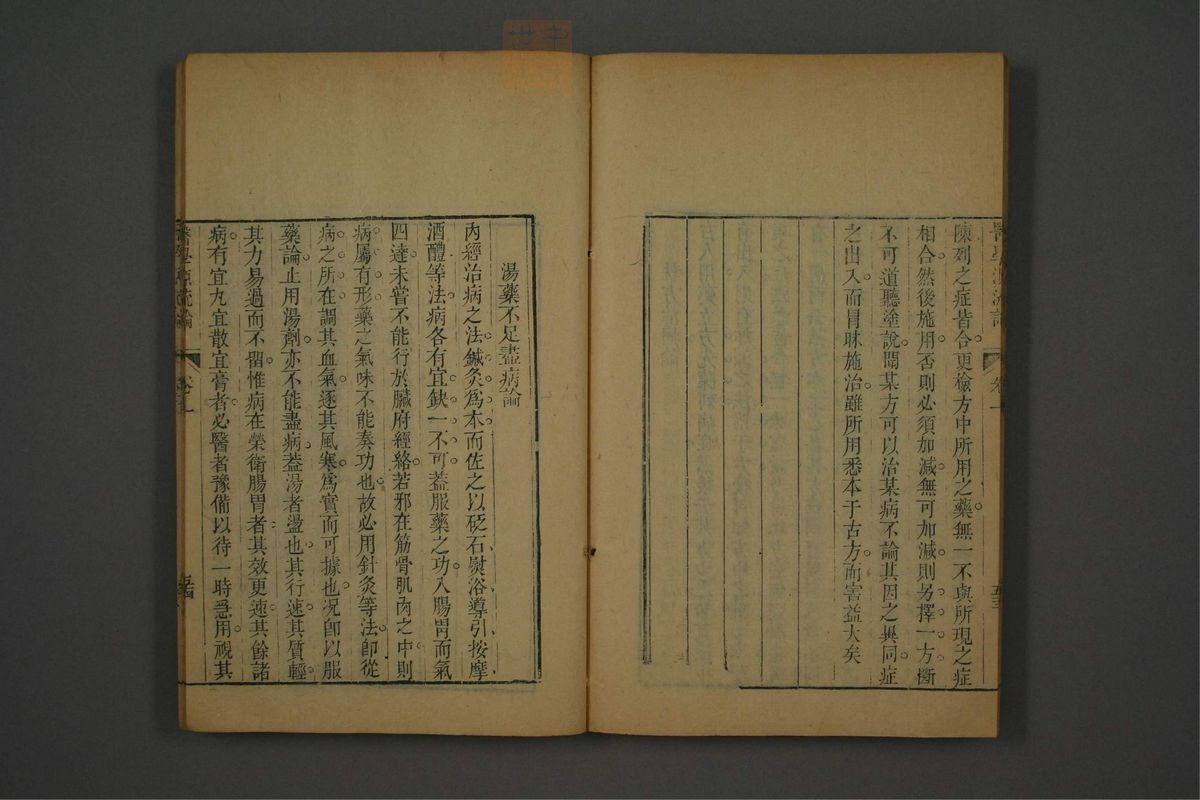 陳列之症皆合更檢方中所用之藥無一不與所現之症
相合然後施用否則必須加減無可加減則另擇一方斷
不可道聽塗說聞某方可以治某病不論其因之異同症
之出入而冒昧施治雖所用悉本于古方而害益大矣
醫學源流論
卷一
湯藥不足盡病論
內經治病之法鍼灸爲本而佐之以砭石熨浴導引按摩
酒醴等法病各有宜缺一不可葢服藥之功入腸胃而氣
四達未嘗不能行於臟府經絡若邪在筋骨肌肉之中則
病屬有形藥之氣味不能奏功也故必用針灸等法卽從
病之所在調其血氣逐其風寒爲實而可據也况卽以服
藥論止用湯劑亦不能盡病葢湯者盪也其行速其質輕
其力易過而不留惟病在榮衛腸胃者其效更速其餘諸
病有宜丸宜散宜膏者必醫者豫備以待一時急用視其
醫學源流論
卷一